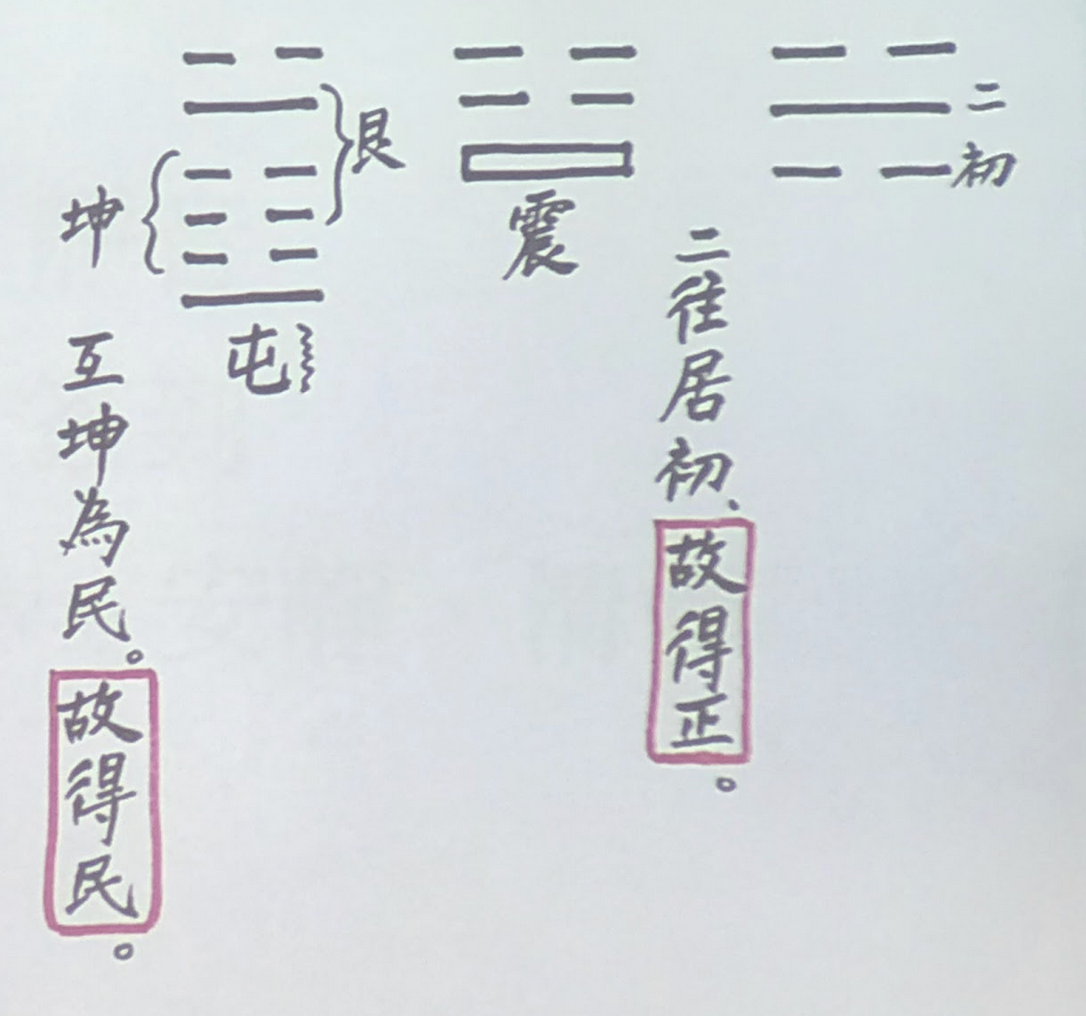 二
初
二往居初、故得正。
震
艮
屯
坤
互坤為民。故得民。